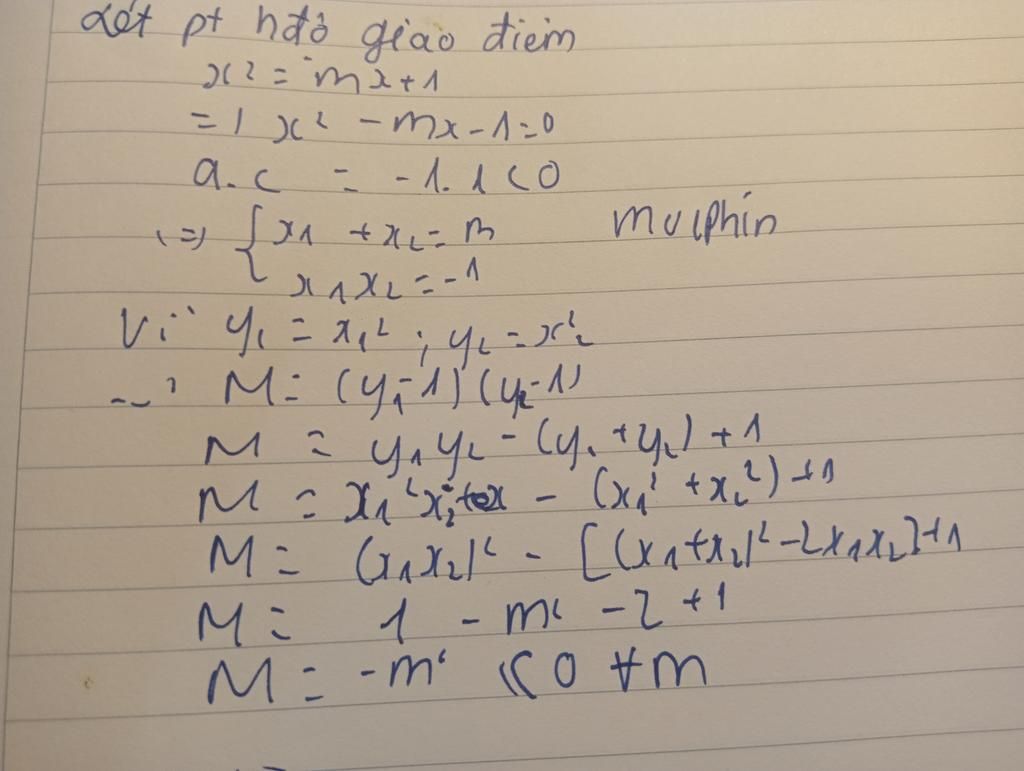 Xét pt hđộ giao điểm
x² = mx+1
=) x² - mx - 1 = 0
a.c = -1.1 < 0
(=) { x1 + x2 = m
x1x2 = -1
Vì y1 = x1² ; y2 = x2²
M = (y1-1)(y2-1)
M = y1y2 - (y1+y2) + 1
M = x1²x2² - (x1² + x2²) + 1
M = (x1x2)² - [(x1+x2)² - 2x1x2] + 1
M = 1 - m² - 2 + 1
M = -m² ≤ 0 ∀m